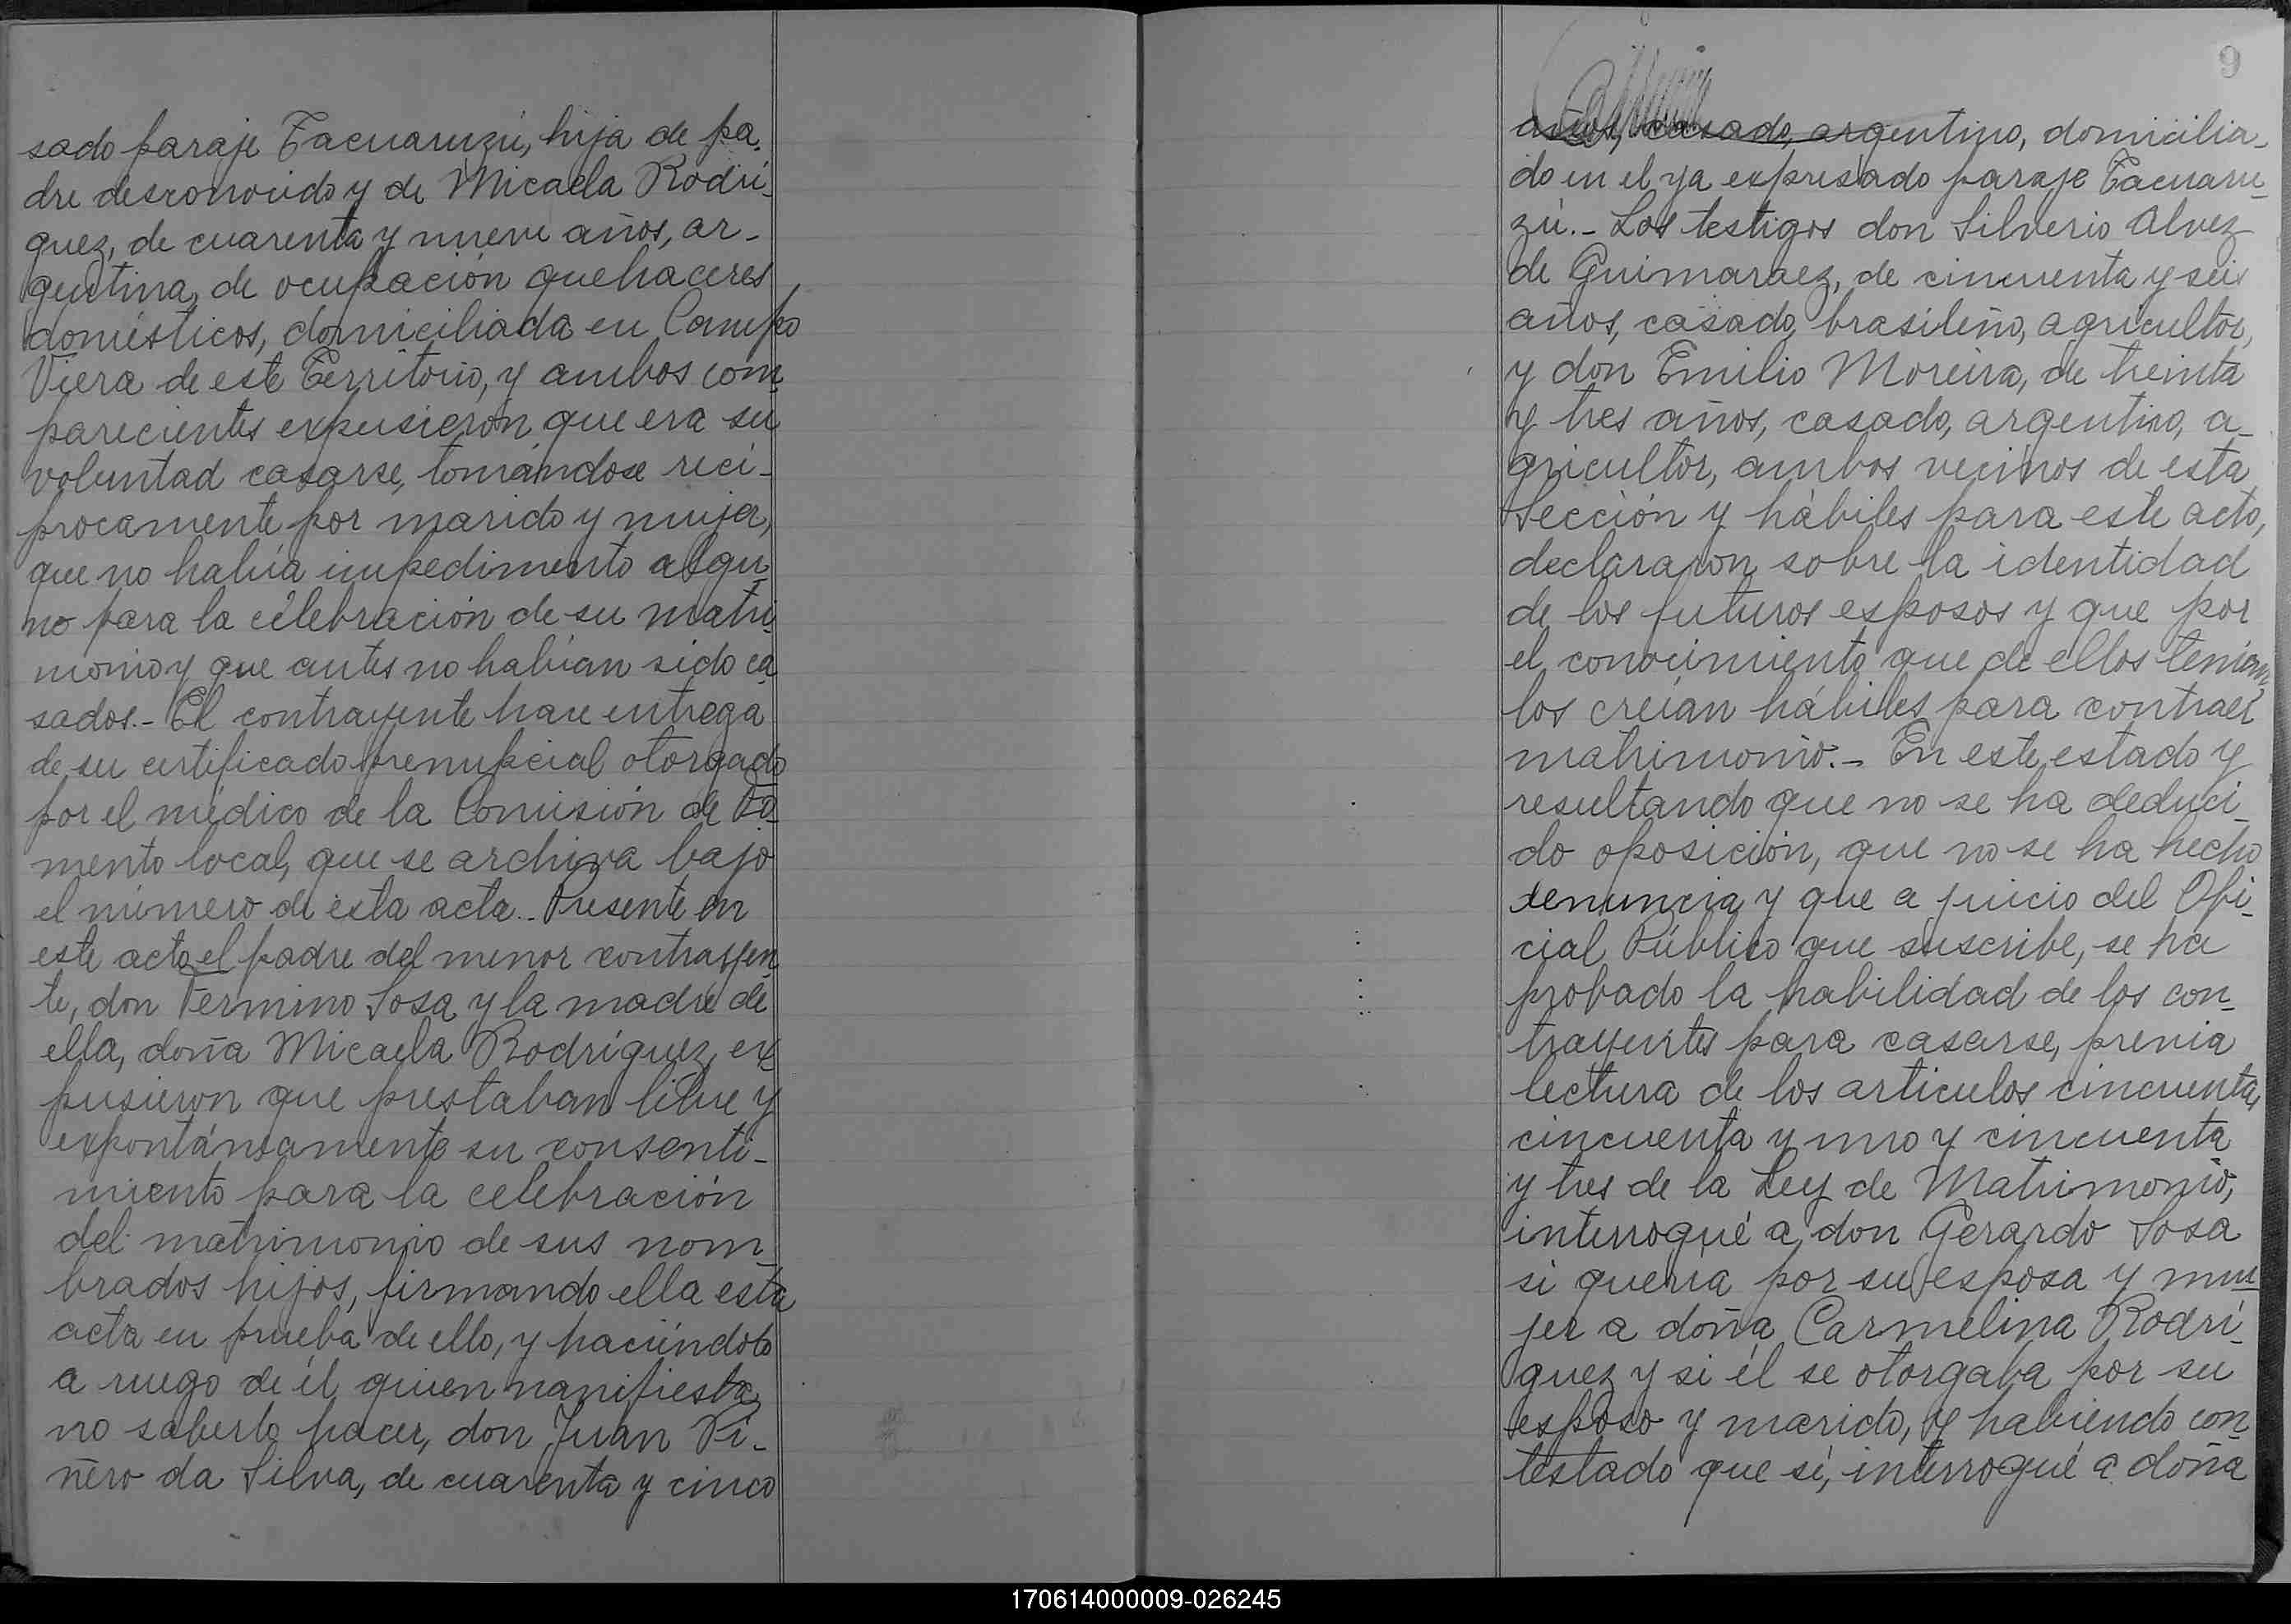 sado paraje Tacuaruzú, hija de pa-
dre desconocido y de Micaela Rodrí-
guez, de cuarenta y nueve años, ar-
gentina, de ocupación quehaceres
domésticos, domiciliada en Campo
Viera de este Territorio, y ambos com-
parecientes expusieron que era su
voluntad casarse, tomándose recí-
procamente por marido y mujer,
que no había impedimento algu-
no para la celebración de su matri-
monio y que antes no habían sido ca-
sados.- El contrayente hace entrega
de su certificado prenupcial otorgado
por el médico de la Comisión de Fo-
mento local, que se archiva bajo
el número de esta acta.- Presente en
este acto el padre del menor contrayen-
te, don Fermino Sosa y la madre de
ella, doña Micaela Rodríguez, ex-
pusieron que prestaban libre y
expontáneamente su consenti-
miento para la celebración
del matrimonio de sus nom-
brados hijos, firmando ella esta
acta en prueba de ello, y haciéndolo
a ruego de él quien manifiesta
no saberlo hacer, don Juan Pi-
ñero da Silva, de cuarenta y cinco
9
años, casado, argentino, domicilia-
do en el ya expresado paraje Tacuaru-
zú.- Los testigos don Silverio Alvez
de Guimaraez, de cincuenta y seis
años, casado, brasileño, agricultor,
y don Emilio Moreira, de treinta
y tres años, casado, argentino, a-
gricultor, ambos vecinos de esta
Sección y hábiles para este acto,
declararon sobre la identidad
de los futuros esposos y que por
el conocimiento que de ellos tenían,
los creían hábiles para contraer
matrimonio.- En este estado y
resultando que no se ha deduci-
do oposición, que no se ha hecho
denuncia y que a juicio del Ofi-
cial Público que suscribe, se ha
probado la habilidad de los con-
trayentes para casarse, previa
lectura de los artículos cincuenta,
cincuenta y uno y cincuenta
y tres de la Ley de Matrimonio,
interrogué a don Gerardo Sosa
si quería por su esposa y mu-
jer a doña Carmelina Rodrí-
guez y si él se otorgaba por su
esposo y marido, y habiendo con-
testado que sí, interrogué a doña
170614000009-026245